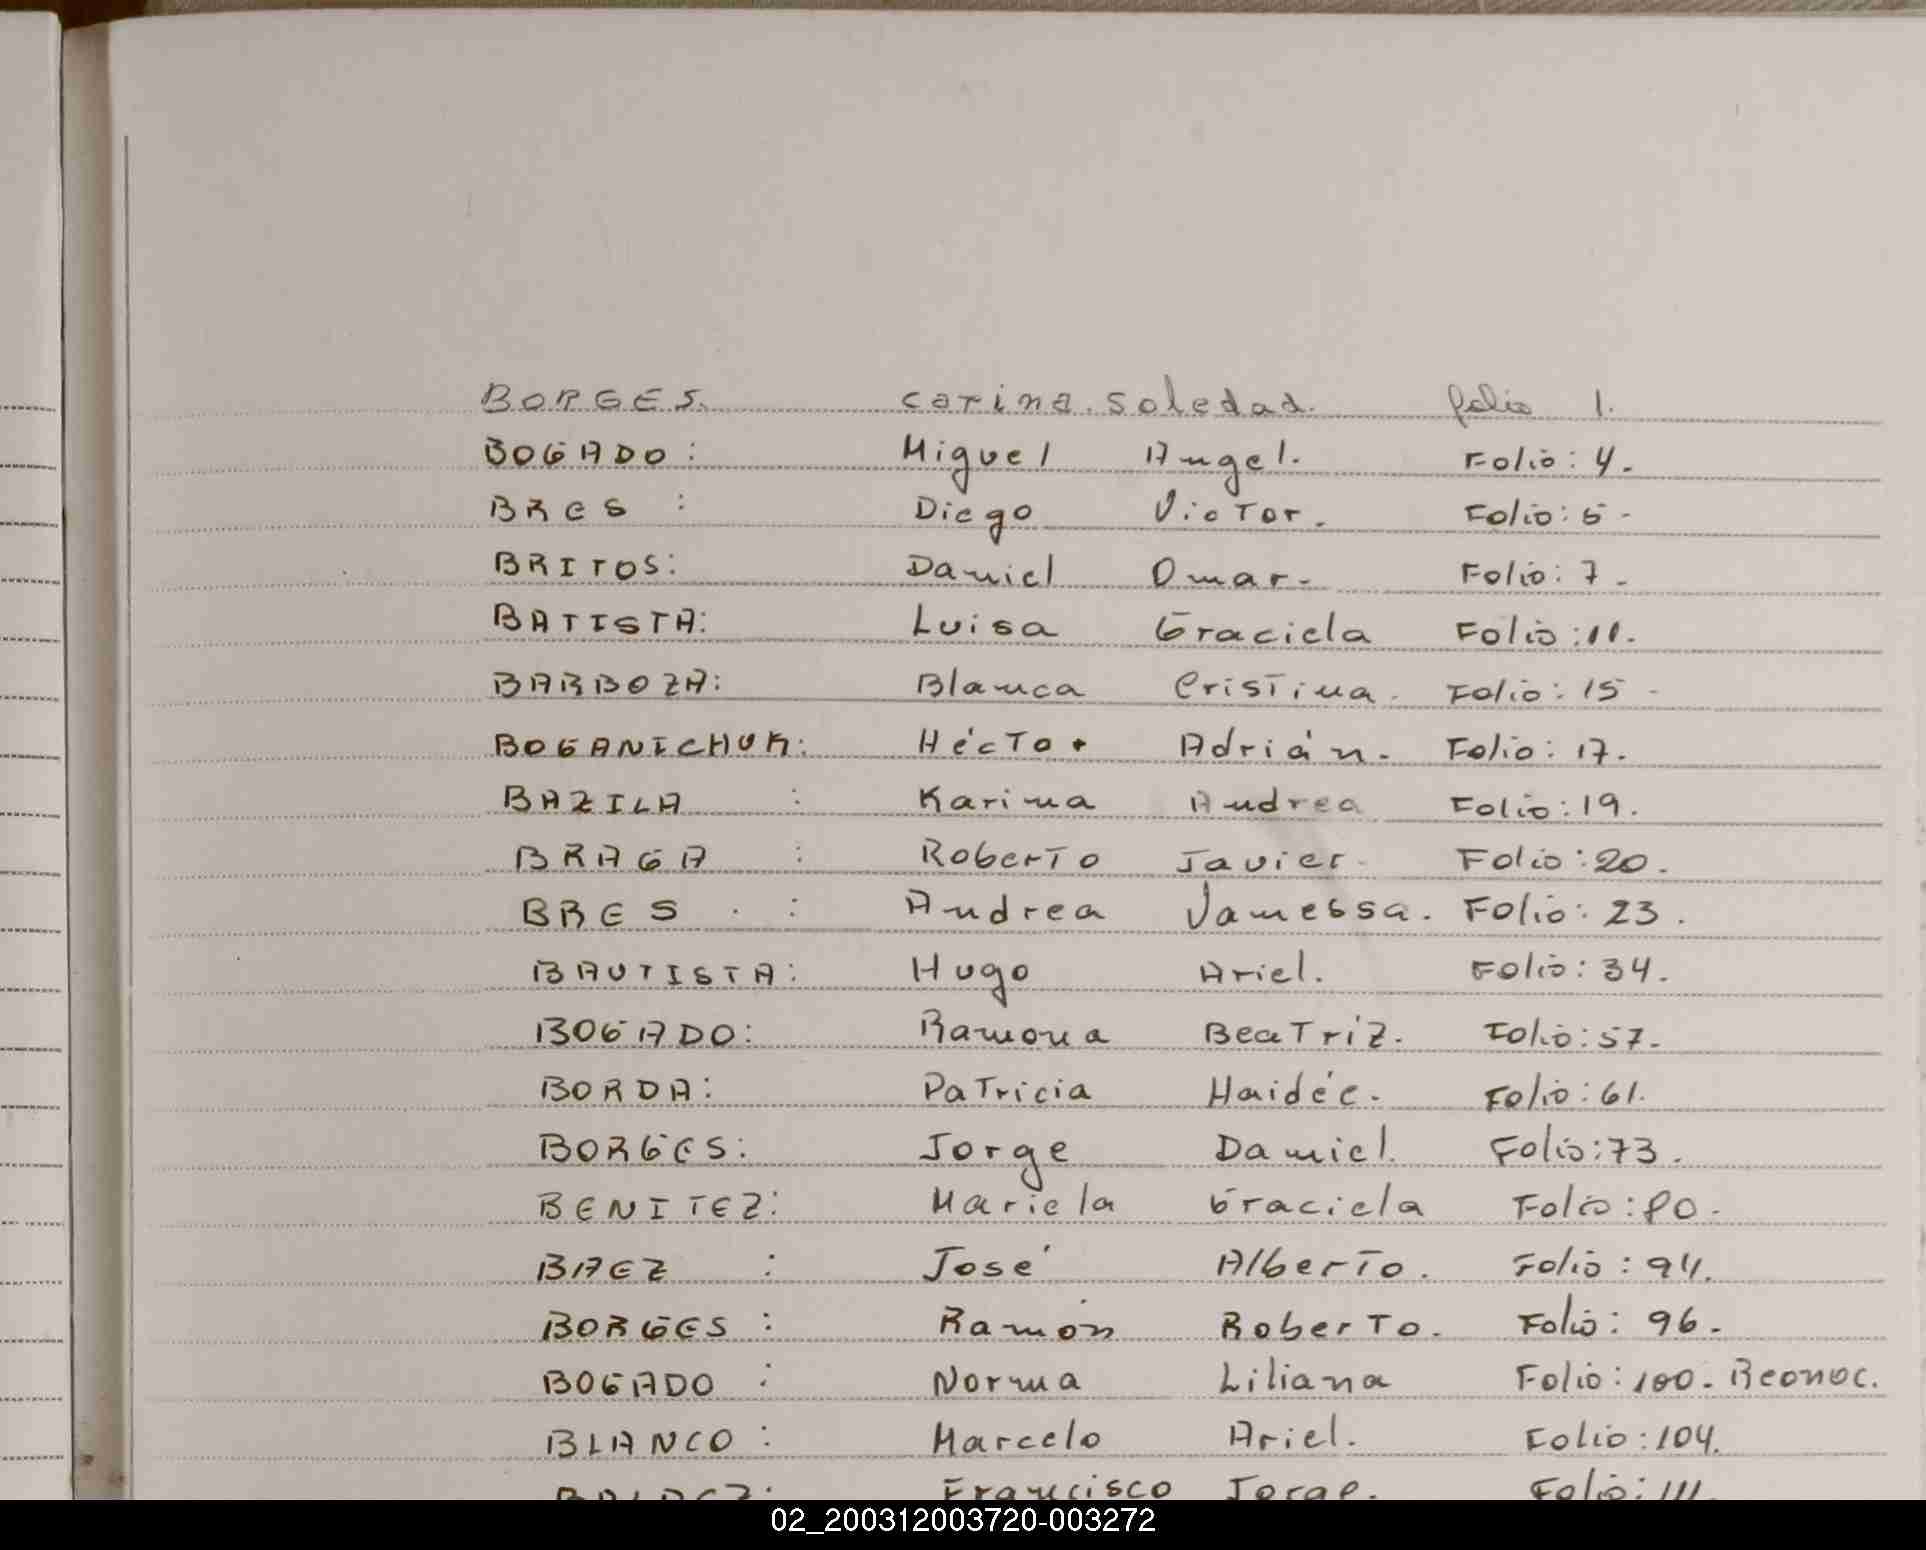 BORGES. Carina Soledad. folio 1.
BOGADO: Miguel Angel. Folio: 4.
BRES : Diego Victor. Folio: 5.
BRITOS: Daniel Omar. Folio: 7.
BATISTA: Luisa Graciela Folio: 11.
BARBOZA: Blanca Cristina. Folio: 15
BOGANICHUK: Héctor Adrián. Folio: 17.
BAZILA : Karina Andrea Folio: 19.
BRAGA : Roberto Javier. Folio: 20.
BRES : Andrea Vanessa. Folio: 23.
BAUTISTA: Hugo Ariel. Folio: 34.
BOGADO: Ramona Beatriz. Folio: 57.
BORDA: Patricia Haidée. Folio: 61.
BORGES: Jorge Daniel. Folio: 73.
BENITEZ: Mariela Graciela Folio: 80.
BAEZ : José Alberto. Folio: 94.
BORGES : Ramón Roberto. Folio: 96.
BOGADO : Norma Liliana Folio: 100. Reonoc.
BLANCO : Marcelo Ariel. Folio: 104.
Francisco Jorge. Folio: 111.
02_200312003720-003272